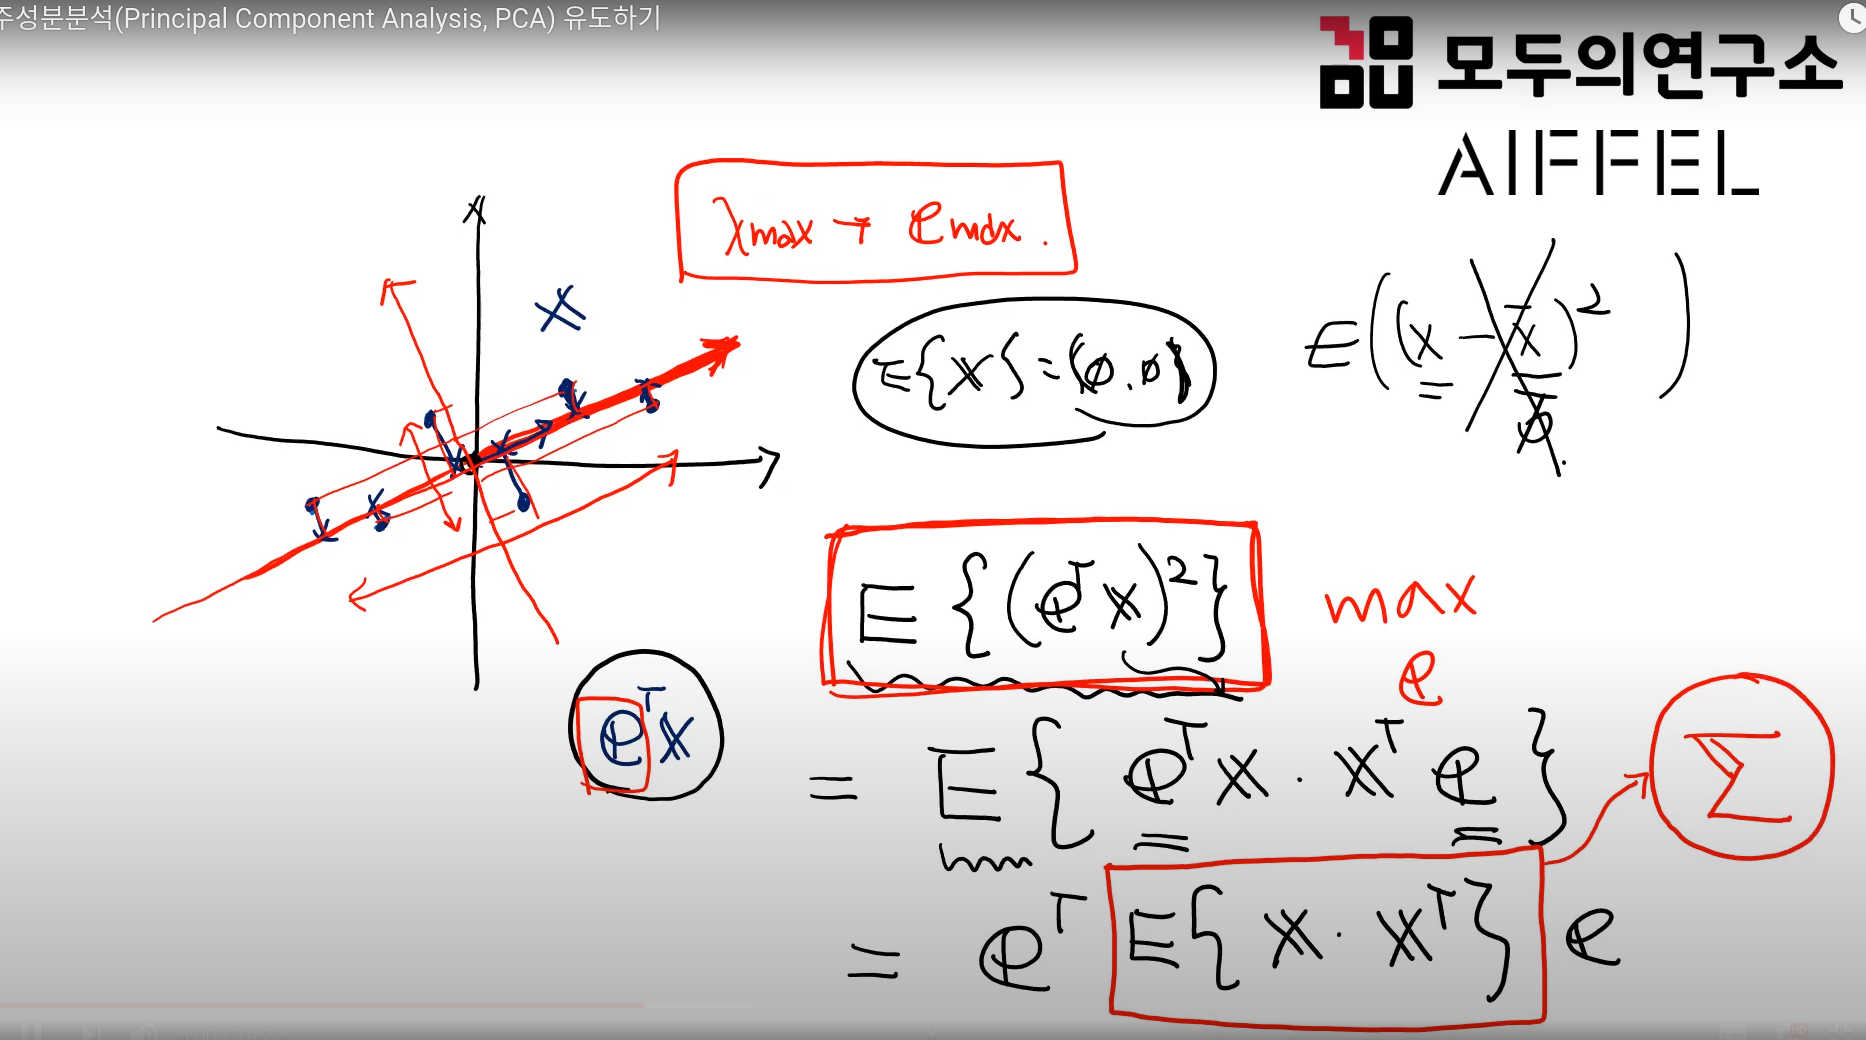 주성분분석(Principal Component Analysis, PCA) 유도하기
모두의연구소
AIFFEL
λmax → emax.
𝕏
E{𝕏} = (0.0)
E((x - x̄)²)
0.
E{(eᵀ𝕏)²}
max
e
eᵀ𝕏
= E{eᵀ𝕏 · 𝕏ᵀe}
Σ
= eᵀ E{𝕏 · 𝕏ᵀ} e
HD